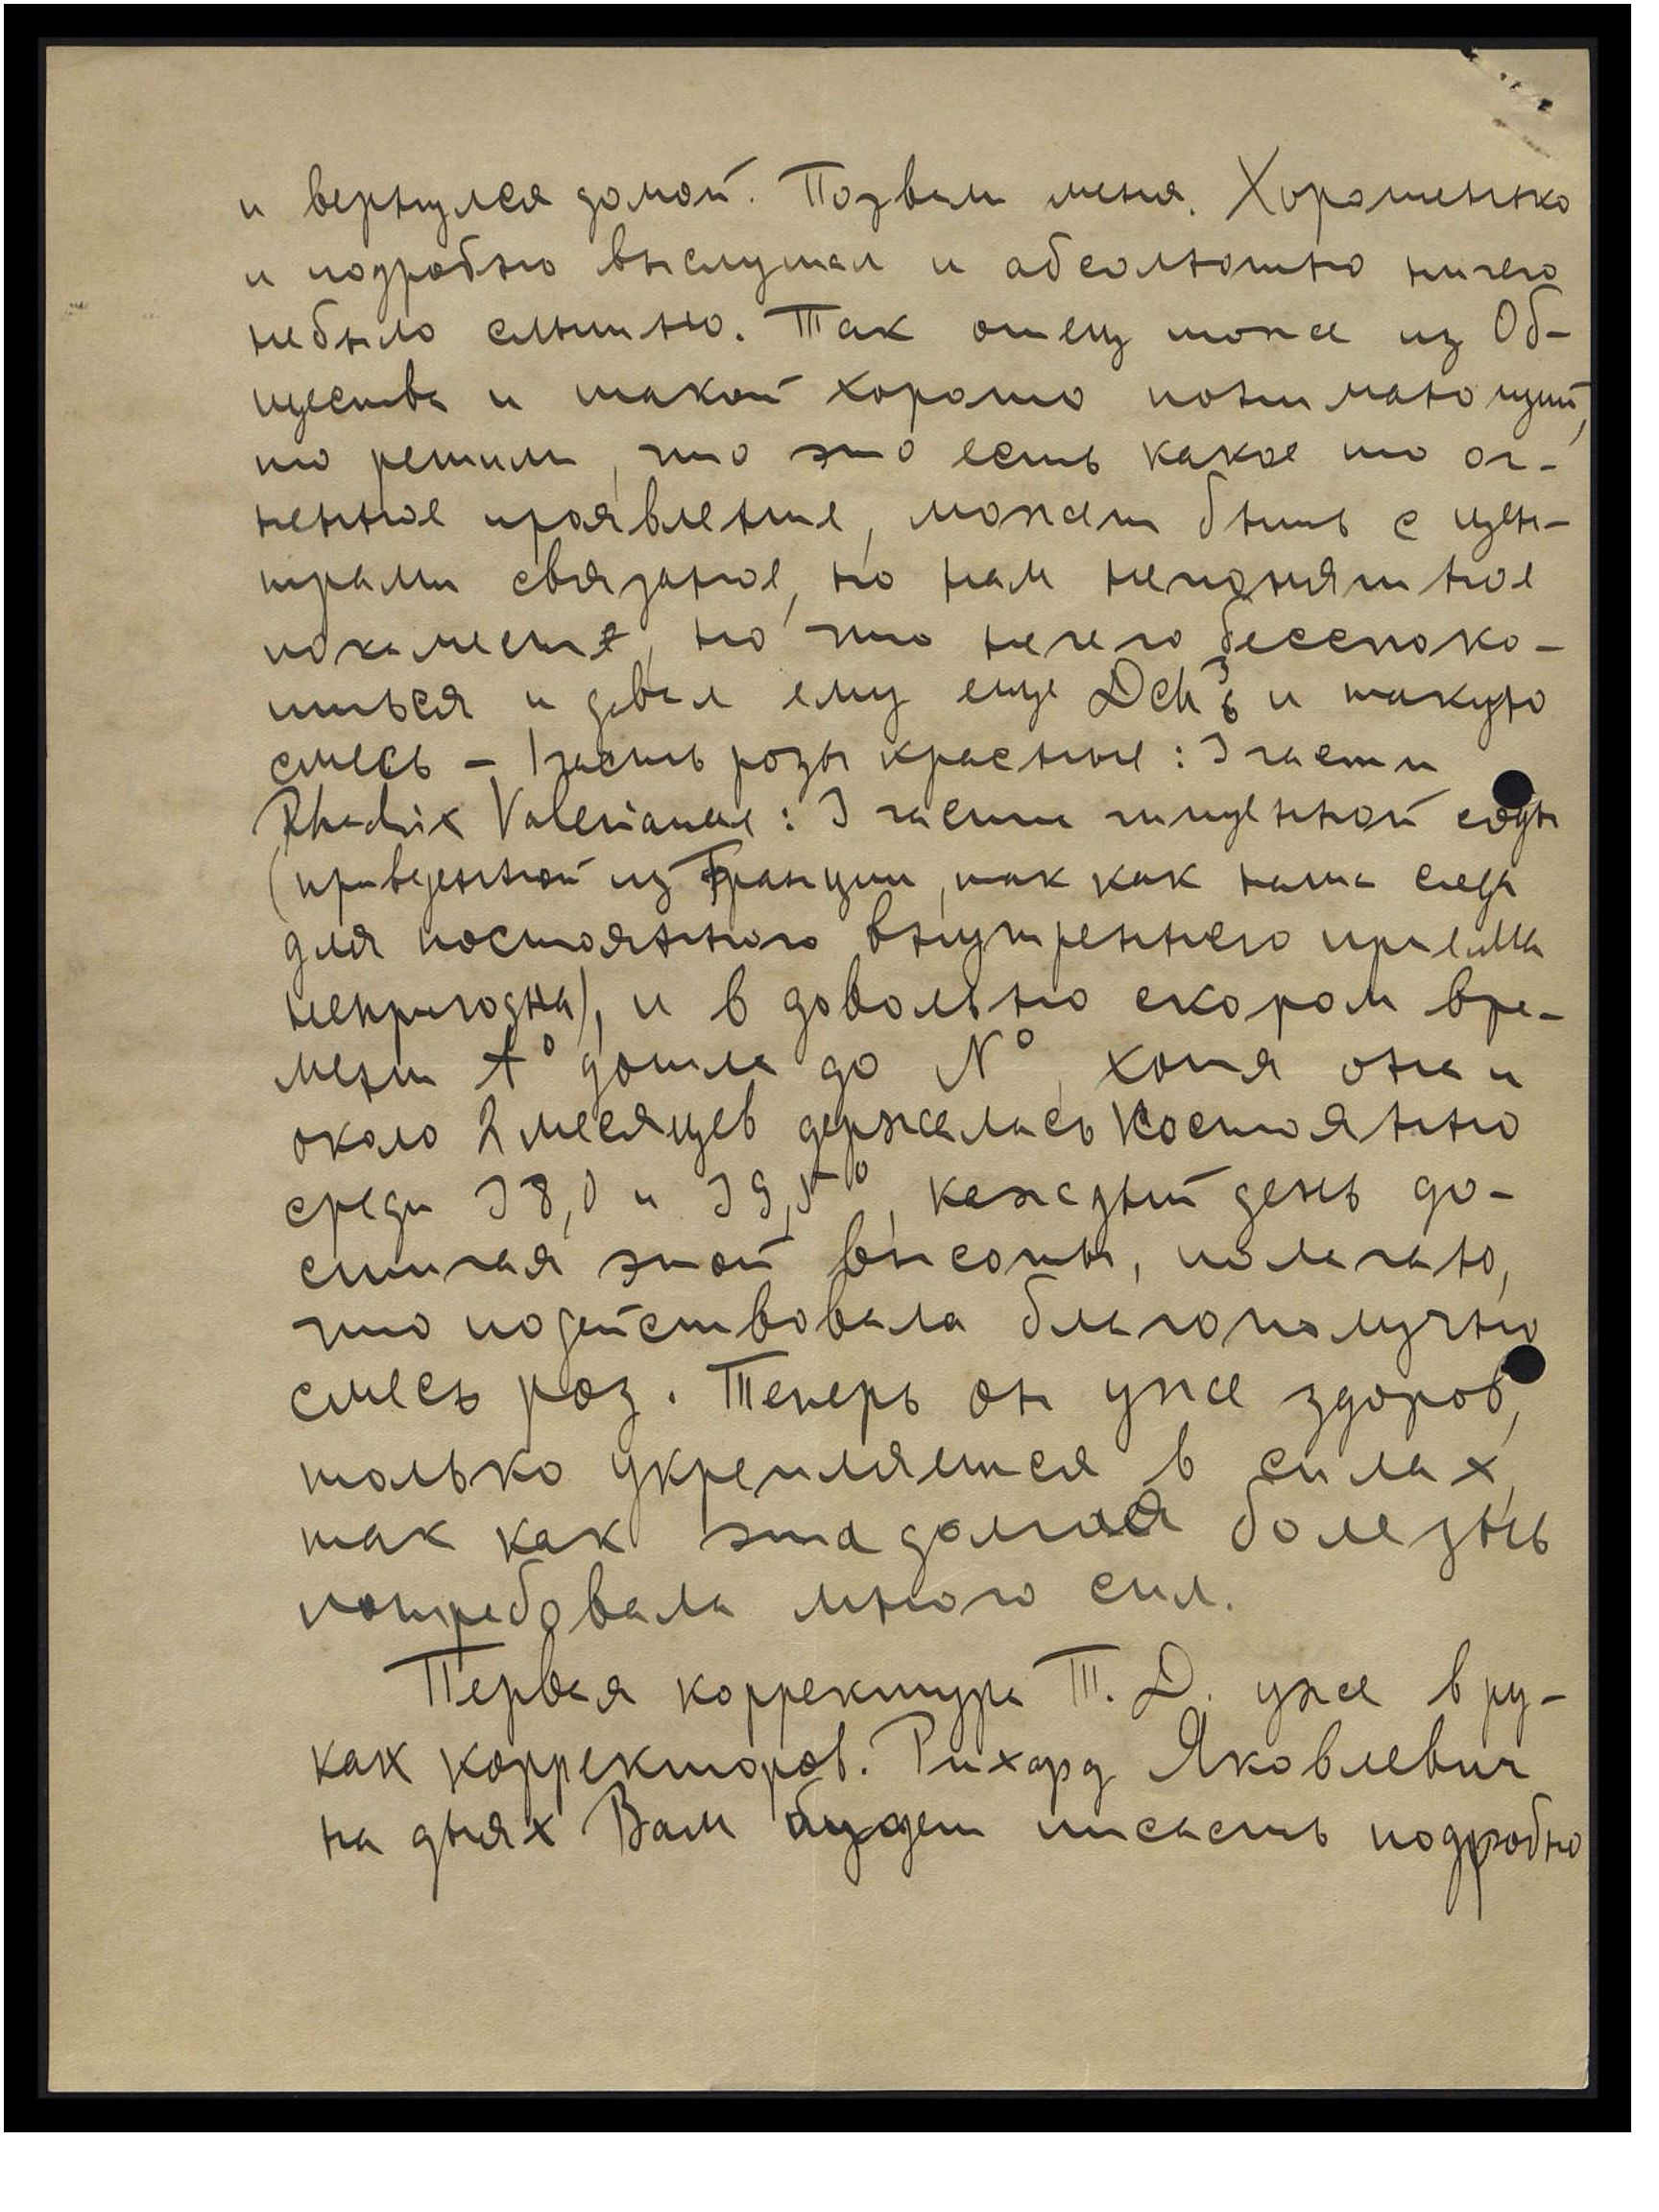 и вернулся домой. Позвали меня. Хорошенько
и подробно выслушал и абсолютно ничего
небыло слышно. Так отец тоже из Об-
щества и такой хорошо понимающий,
то решили, что это есть какое то ог-
ненное проявление, может быть с цен-
трами связаное, но нам непонятное
покамест, но что нечего бесспоко-
иться и давал ему еще Dch и такую
смесь – 1 часть розы красные : 3 части
Rhadix Valerianae : 3 части чищенной соды
(приведенной из Франции, так как наша сода
для постоянного внутреннего приема
непригодна), и в довольно скором вре-
мени t° дошла до N°, хотя она и
около 2 месяцев держалась постоянно
среди 38,0 и 39,5°, каждый день до-
стигая этой высоты, полагаю,
что подействовала благополучно
смесь роз. Теперь он уже здоров,
только укрепляется в силах,
так как эта долгая болезнь
потребовала много сил.
Первая корректура Т. Д. уже в ру-
ках корректоров. Рихард Яковлевич
на днях Вам будет писать подробно